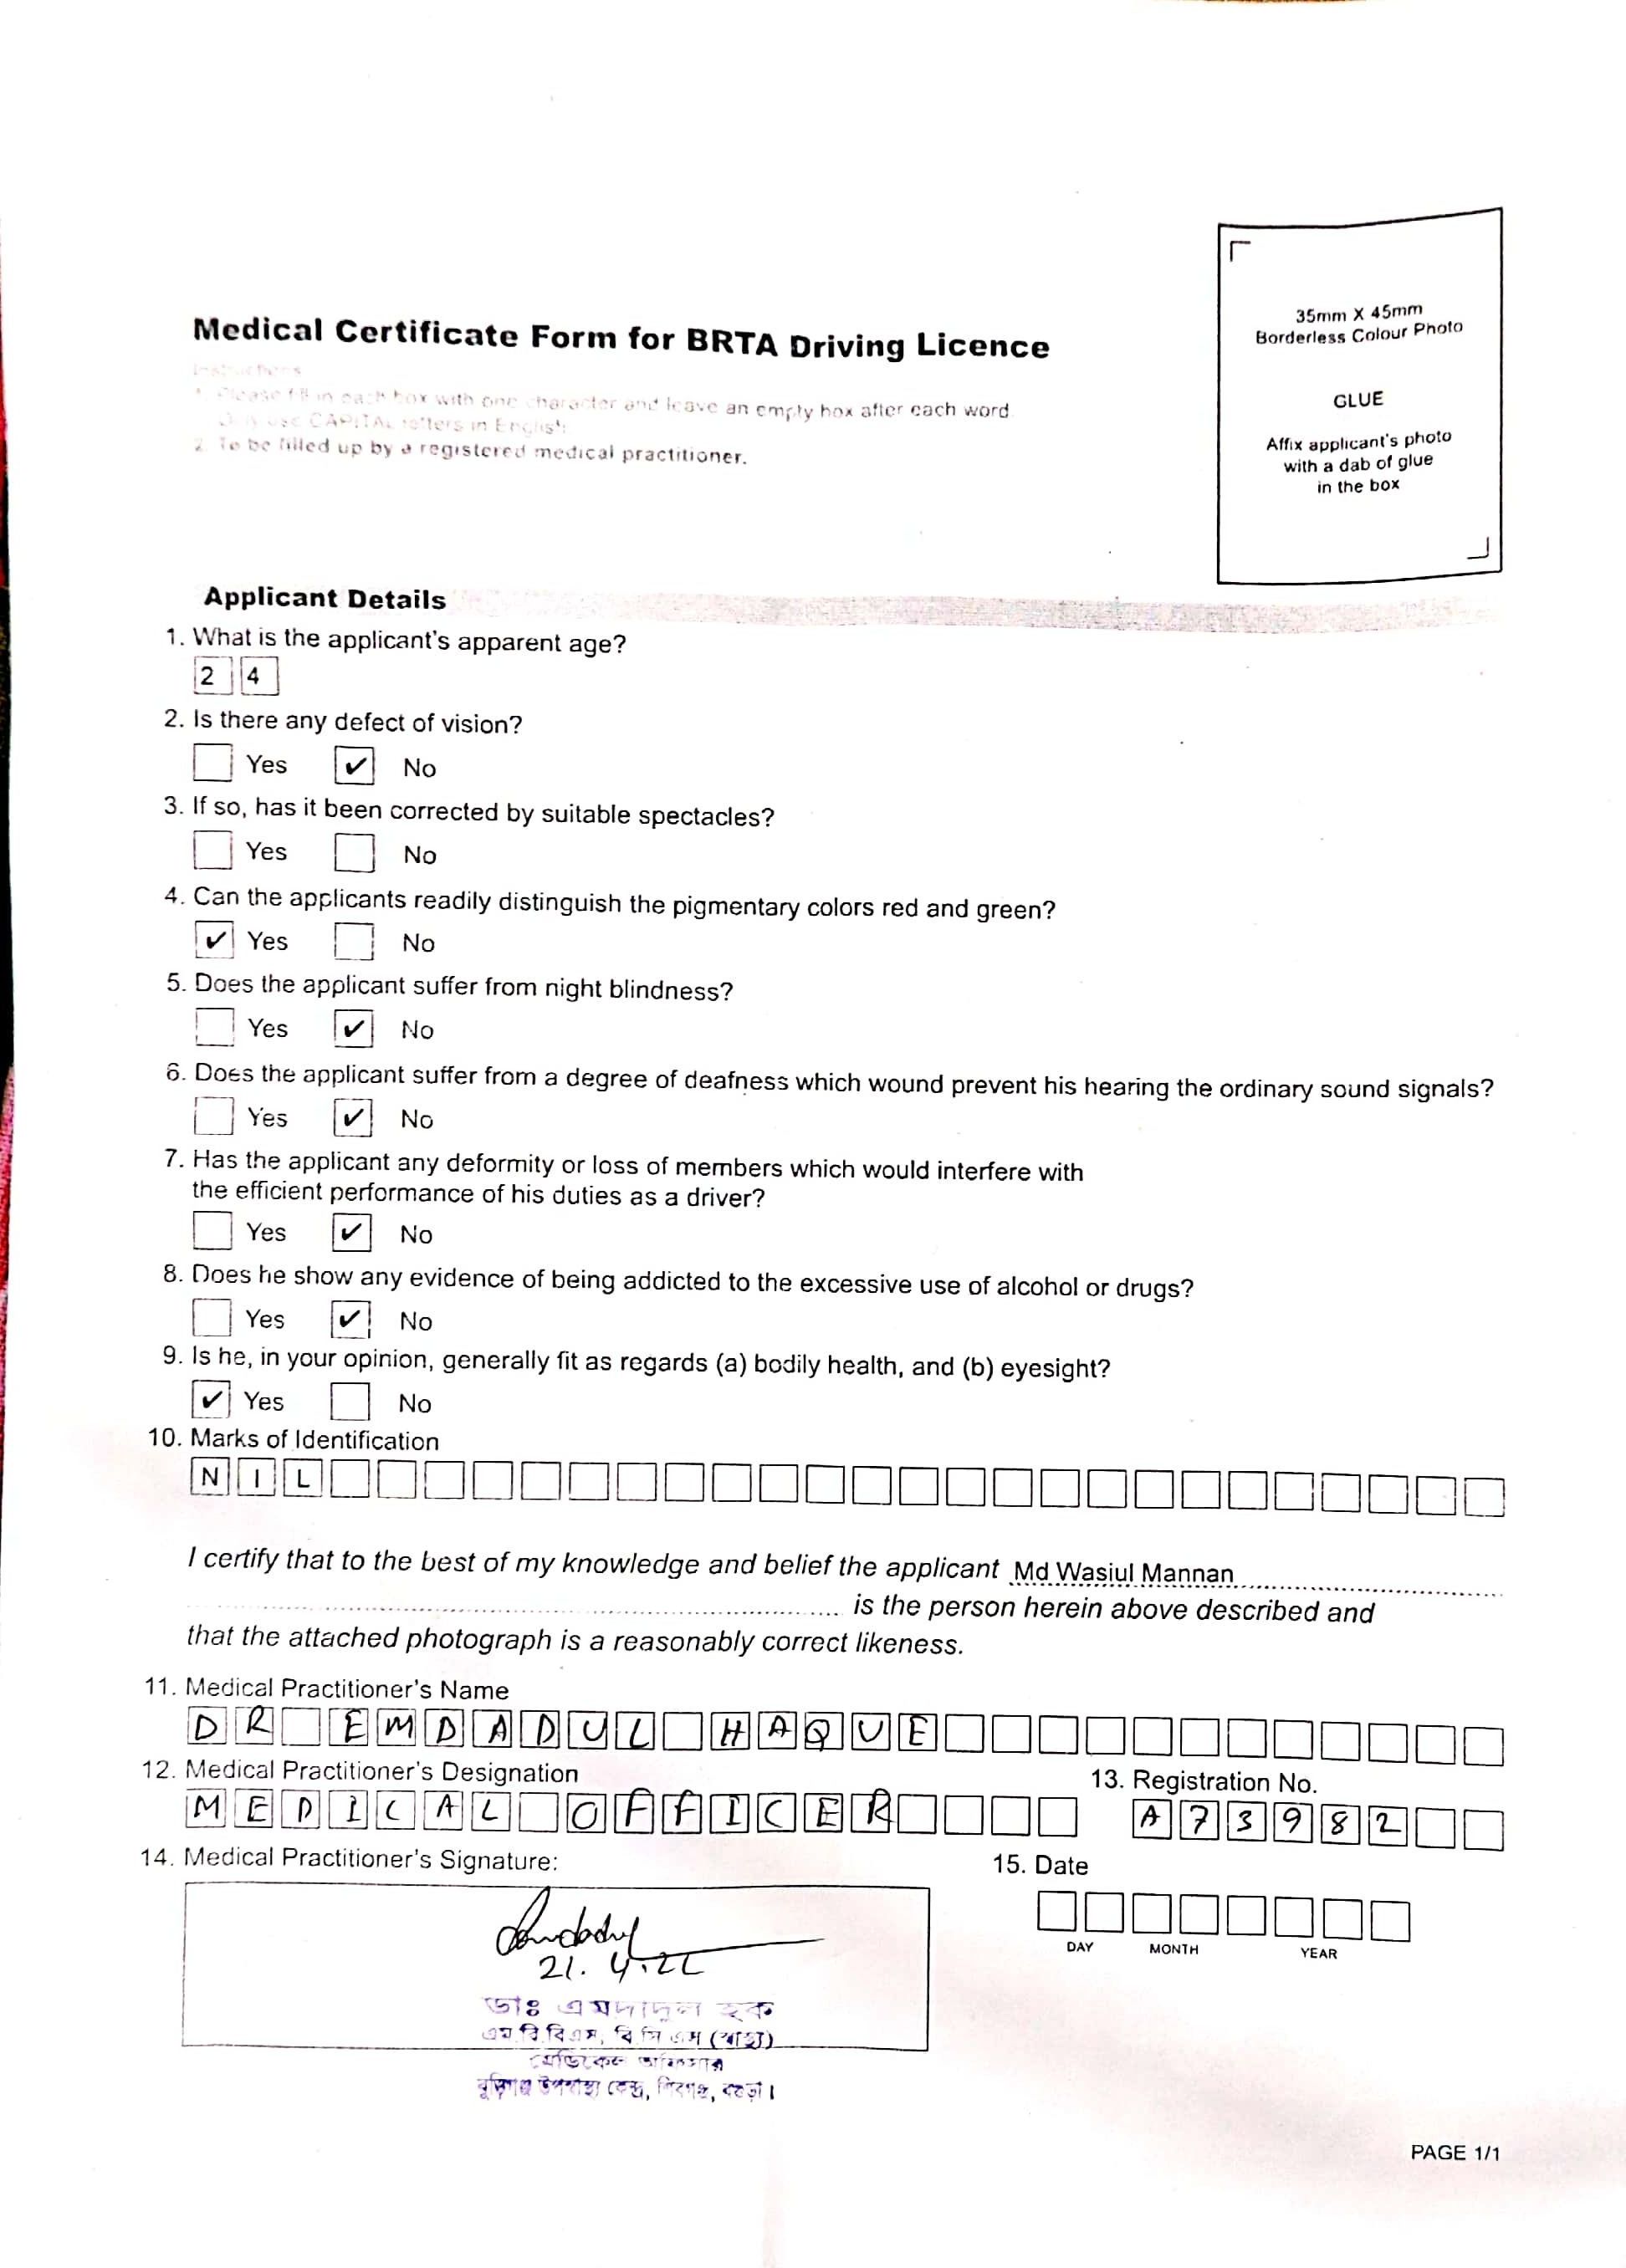 35mm X 45mm
Borderless Colour Photo
GLUE
Affix applicant's photo
with a dab of glue
in the box
Medical Certificate Form for BRTA Driving Licence
Instructions
1. Please fill in each box with one character and leave an empty box after each word
Only use CAPITAL letters in English
2. To be filled up by a registered medical practitioner.
Applicant Details
1. What is the applicant's apparent age?
2 4
2. Is there any defect of vision?
Yes ✔ No
3. If so, has it been corrected by suitable spectacles?
Yes No
4. Can the applicants readily distinguish the pigmentary colors red and green?
✔ Yes No
5. Does the applicant suffer from night blindness?
Yes ✔ No
6. Does the applicant suffer from a degree of deafness which wound prevent his hearing the ordinary sound signals?
Yes ✔ No
7. Has the applicant any deformity or loss of members which would interfere with
the efficient performance of his duties as a driver?
Yes ✔ No
8. Does he show any evidence of being addicted to the excessive use of alcohol or drugs?
Yes ✔ No
9. Is he, in your opinion, generally fit as regards (a) bodily health, and (b) eyesight?
✔ Yes No
10. Marks of Identification
NIL
I certify that to the best of my knowledge and belief the applicant Md Wasiul Mannan
is the person herein above described and
that the attached photograph is a reasonably correct likeness.
11. Medical Practitioner's Name
DR EMDADUL HAQUE
12. Medical Practitioner's Designation 13. Registration No.
MEDICAL OFFICER A73982
14. Medical Practitioner's Signature: 15. Date
21.4.22
DAY MONTH YEAR
ডাঃ এমদাদুল হক
এম বি বি এস, বি সি এস (স্বাস্থ্য)
মেডিকেল অফিসার
উপস্বাস্থ্য কেন্দ্র, শিবগঞ্জ, বগুড়া।
PAGE 1/1